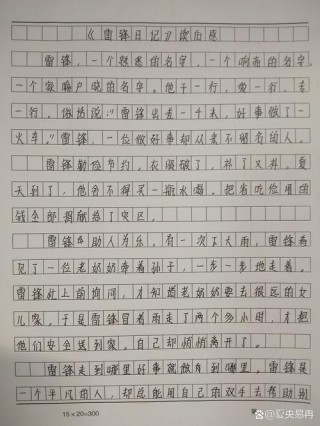 《雷锋日记》读后感
雷锋,一个熟悉的名字,一个响亮的名字,
一个家喻户晓的名字。他干一行,爱一行,专
一行。俗话说:“雷锋出差一千里,好事做了一
火车。”雷锋,一位做好事却从来不留名的人。
雷锋勤俭节约,衣服破了,补了又补。夏
天到了,他舍不得买一瓶水喝。把省吃俭用的
钱全部捐献给了灾区。
雷锋助人为乐。有一次下大雨,雷锋看
见了一位老奶奶牵着孙子,一步一步地走着。
雷锋赶上前询问,才知道老奶奶要去很远的女
儿家。于是雷锋冒着雨走了两个多小时,才把
他们安全送到家。自己却悄悄离开了。
雷锋走到哪里好事就做到哪里。雷锋是
一个平凡的人,却总能用自己的双手去帮助别
15×20=300